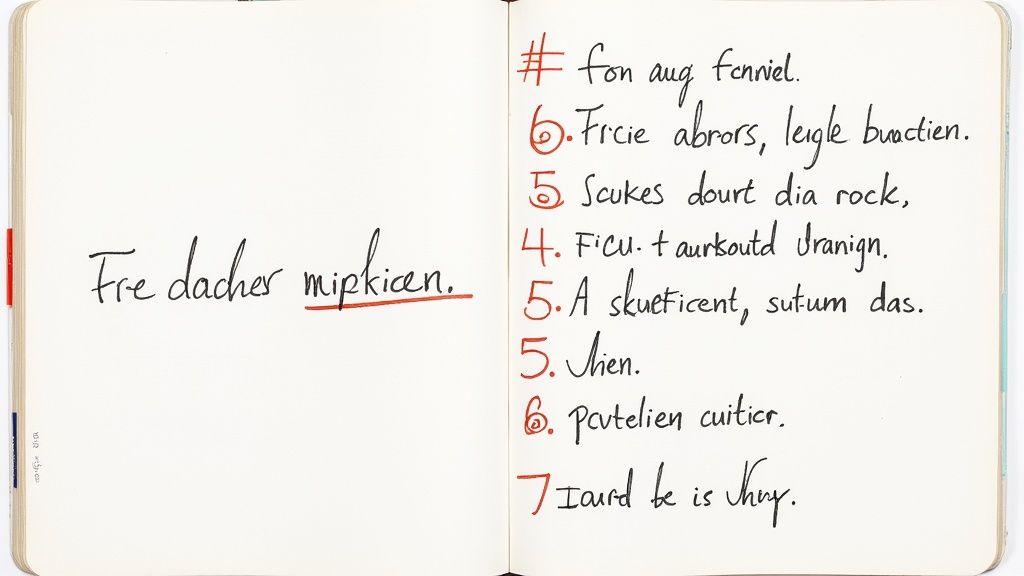 Fre dacher mipkicen.
# fon aug fcnniel.
6. Frcie abrors, leigle buactien.
5 Scukes dourt dia rock,
4. FiCU. t aurksoutd Uranign.
5. A skueficent, sutum das.
5. Uhien.
6. pcvtelien cuiticr.
7 Iaurd be is Uhny.